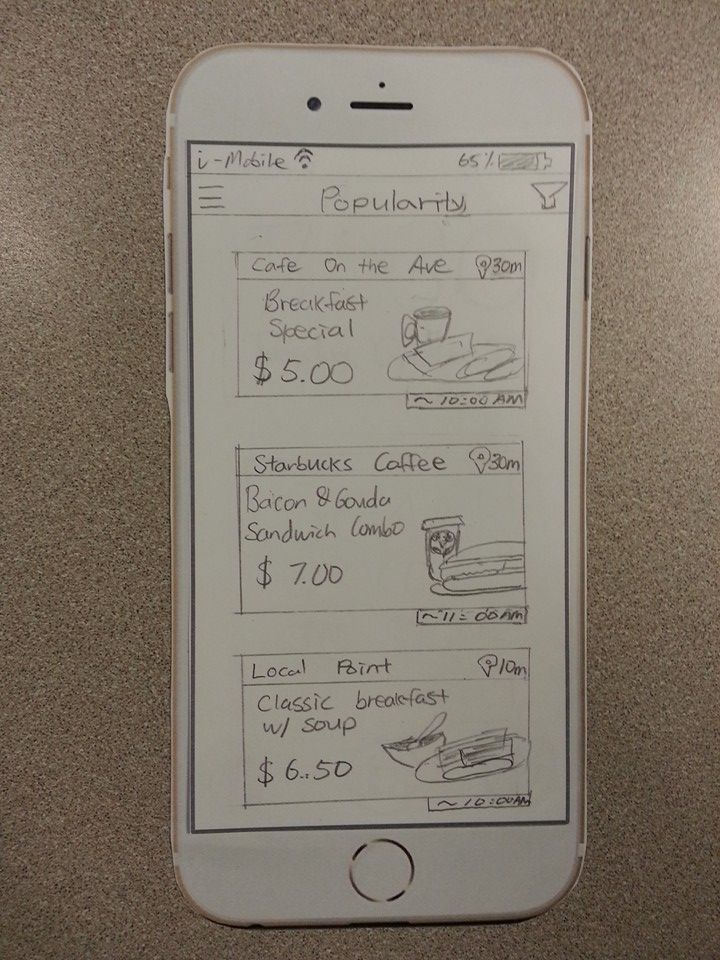 i-Mobile 65%
Popularity
Cafe On the Ave 30m
Breakfast
Special
$5.00
~ 10:00 AM
Starbucks Caffee 30m
Bacon & Gouda
Sandwich Combo
$ 7.00
~11:00 AM
Local Point 10m
Classic breakfast
w/ soup
$ 6.50
~ 10:00AM